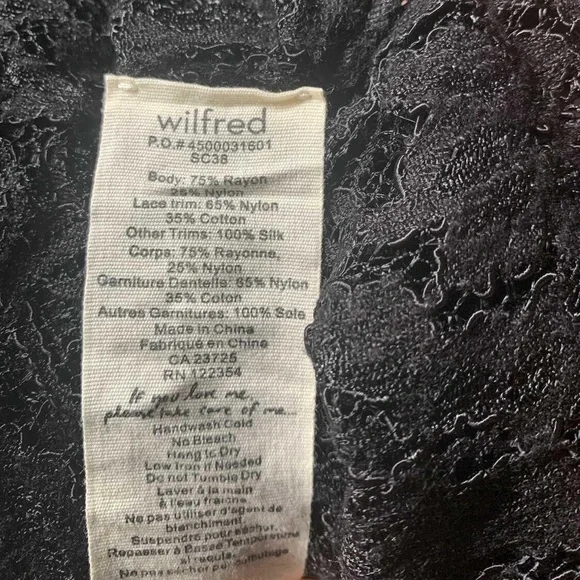 wilfred
P.O.# 4500031601
SC38
Body: 75% Rayon
25% Nylon
Lace trim: 65% Nylon
35% Cotton
Other Trims: 100% Silk
Corps: 75% Rayonne,
25% Nylon
Garniture Dentelle: 65% Nylon
35% Coton
Autres Garnitures: 100% Soie
Made in China
Fabriqué en Chine
CA 23725
RN 122354
If you love me,
please take care of me...
Handwash Cold
No Bleach
Hang to Dry
Low Iron If Needed
Do not Tumble Dry
Laver à la main
à l'eau fraîche.
Ne pas utiliser d'agent de
blanchiment.
Suspendre pour sécher.
Repasser à Basse Température
si requis.
Ne pas sécher par